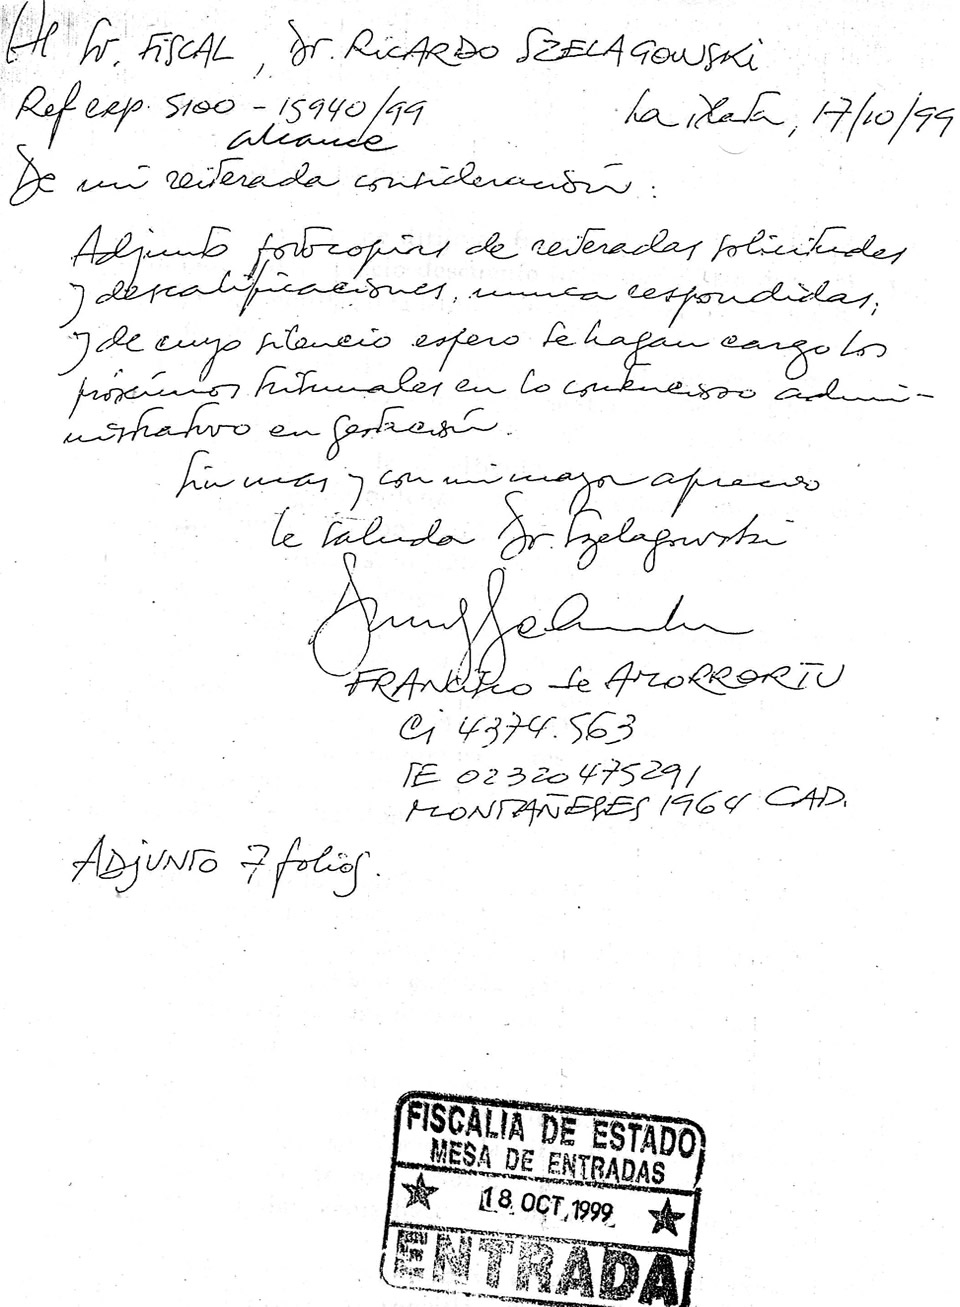 Al Sr. FISCAL, Dr. RICARDO SZELAGOWSKI
Ref exp. 5100 - 15940/99 La Plata, 17/10/99
alcance
De mi reiterada consideración:
Adjunto fotocopias de reiteradas solicitudes
y descalificaciones, nunca respondidas;
y de cuyo silencio espero se hagan cargo los
próximos tribunales en lo contencioso admi-
nistrativo en gestación.
Sin mas y con mi mayor aprecio
le saluda Dr. Szelagowski
FRANCISCO de AMORRORTU
Ci 4374.563
TE 02320475291
MONTAÑESES 1964 CAD.
ADJUNTO 7 folios.
FISCALIA DE ESTADO
MESA DE ENTRADAS
18 OCT. 1999
ENTRADA